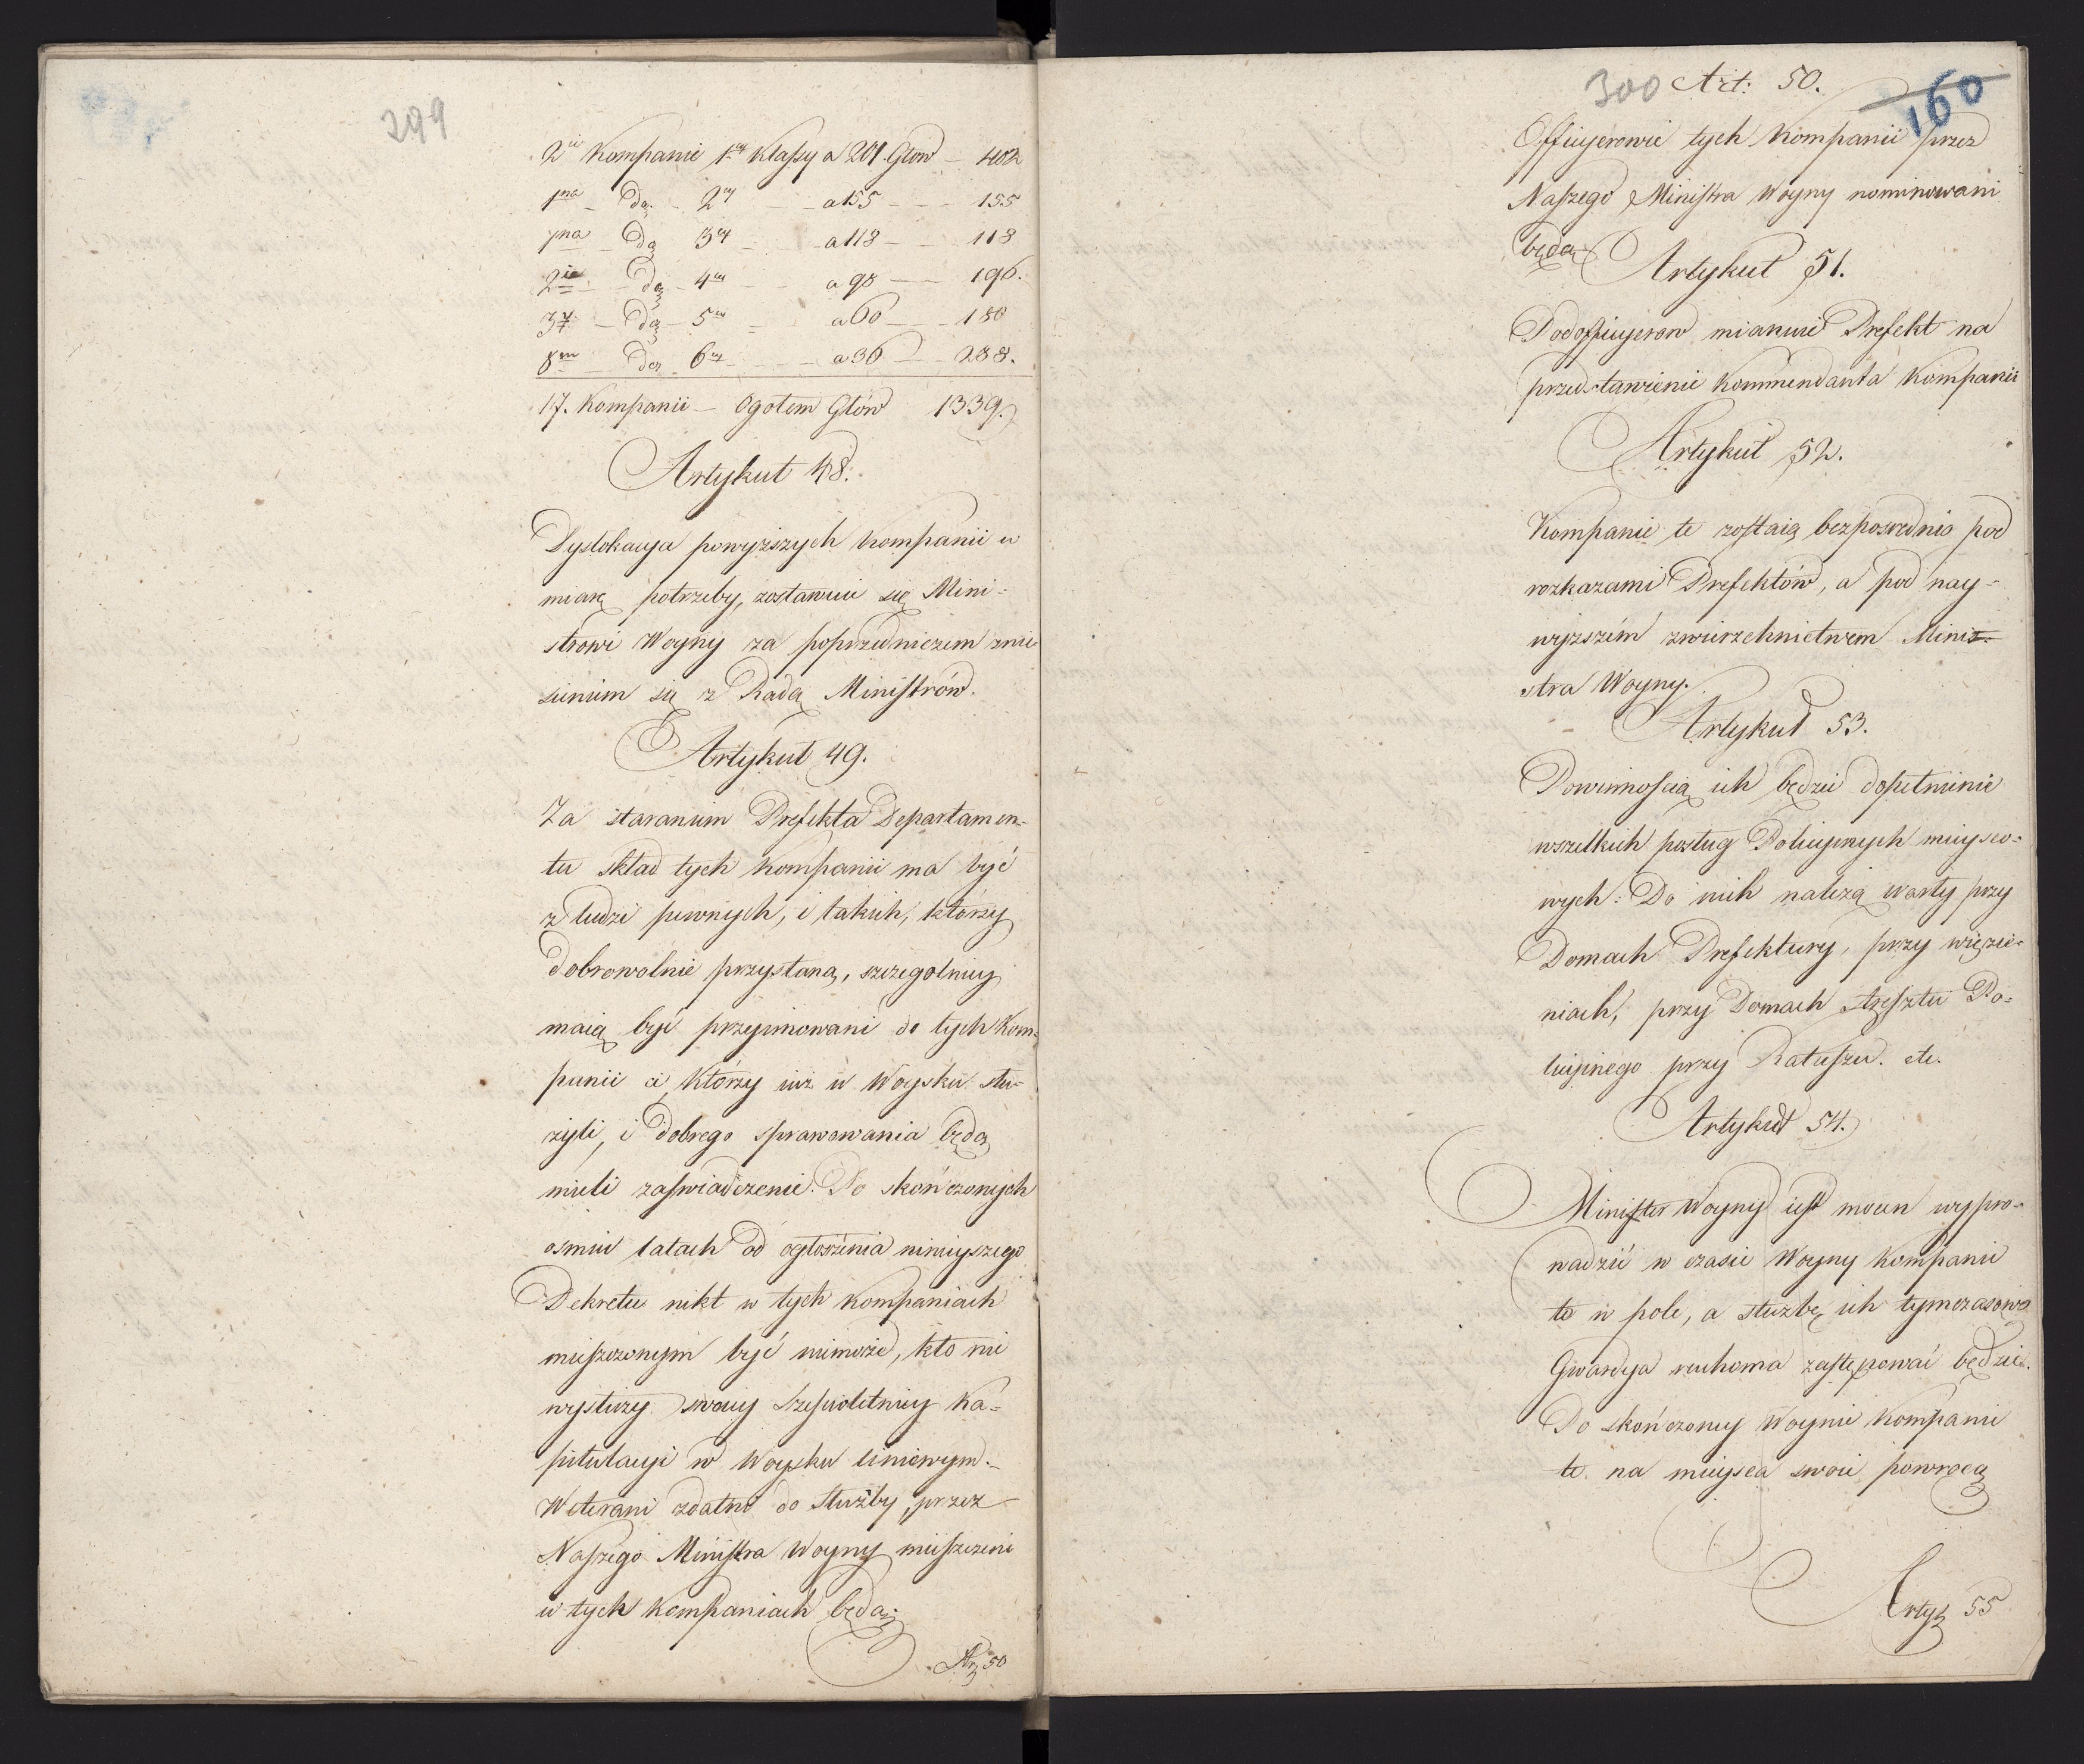 299
2ie Kompanie 1ey Klassy a 201. Głow — 402
1na — Do. — 2ey — a 155 — 155
1na — Do — 3ey — a 118 — 118
2ie — Do — 4ey — a 98 — 196.
3y — Do — 5ey — a 60 — 180
8m — Do — 6ey — a 36 — 288.
17. Kompanii — Ogołem Głów 1339.
Artykuł 48.
Dyslokacya powyższych Kompanii w
miarę potrzeby, zostawuie się Mini-
strowi Woyny za poprzedniczem znie-
sieniem się z Radą Ministrów.
Artykuł 49.
Za staraniem Prefekta Departamen-
tu skład tych Kompanii ma być
z ludzi pewnych, i takich, którzy
dobrowolnie przystaną, szczegolniey
maią być przyimowani do tych Kom-
panii ci, którzy iuż w Woysku słu-
żyli, i dobrego sprawowania będą
mieli zaświadczenie. Po skończonych
osmiu latach od ogłoszenia ninieyszego
Dekretu nikt w tych Kompaniach
mieszczonym być niemoże, kto nie
wysłuży swoiey sześcioletniey Ka-
pitulacyi w Woysku liniowym.
Weterani zdatni do służby, przez
Naszego Ministra Woyny mieszczeni
w tych Kompaniach będą.
Ar. 50
300 Art: 50.
160
Officyerowie tych Kompanii przez
Naszego Ministra Woyny nominowani
będą.
Artykuł 51.
Podofficyerow mianuie Prefekt na
przedstawienie Kommendanta Kompanii
Artykuł 52.
Kompanie te zostaią bezpośrednio pod
rozkazami Prefektów, a pod nay-
wyższém zwierzchnictwem Mini-
stra Woyny.
Artykuł 53.
Powinnością ich będzie dopełnienie
wszelkich posług Policyinych mieysco-
wych: Do nich należą warty przy
Domach Prefektury, przy więzie-
niach, przy Domach Aresztu Po-
licyinego przy Ratuszu. etc.
Artykuł 54.
Minister Woyny iest mocen wypro-
wadzić w czasie Woyny Kompanie
te w pole, a służbę ich tymczasowo
Gwardya ruchoma zastępować będzie.
Po skończoney Woynie Kompanie
te na mieysca swoie powrócą
Artyk 55